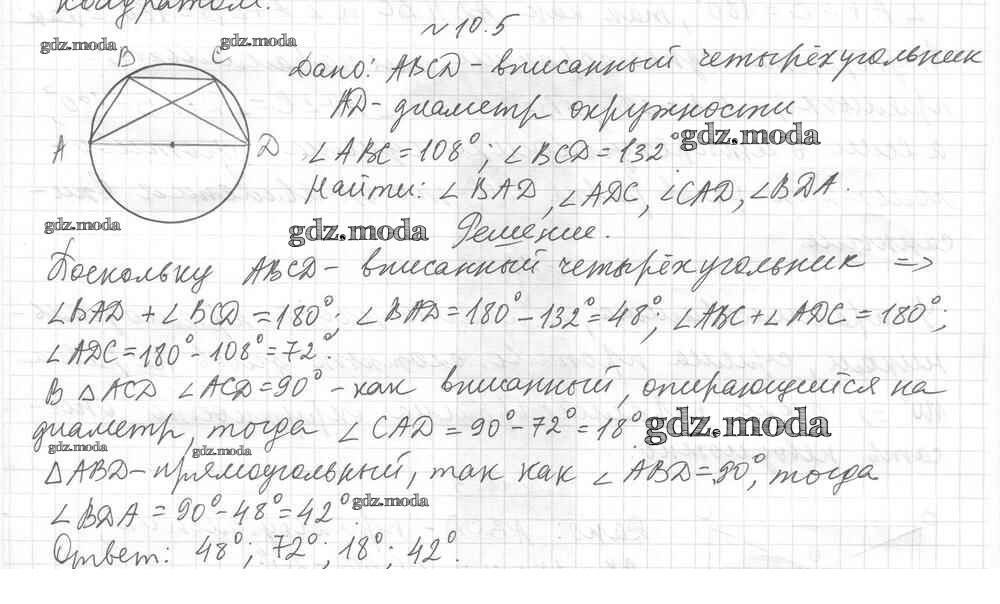 квадратом.
№ 10.5
gdz.moda
gdz.moda
B C
A D
Дано: ABCD - вписанный четырёхугольник
AD - диаметр окружности
gdz.moda
∠ABC = 108°; ∠BCD = 132°
Найти: ∠BAD, ∠ADC, ∠CAD, ∠BDA.
gdz.moda
gdz.moda
Решение.
Поскольку ABCD - вписанный четырёхугольник =>
∠BAD + ∠BCD = 180°; ∠BAD = 180° - 132° = 48°; ∠ABC + ∠ADC = 180°;
∠ADC = 180° - 108° = 72°.
В △ACD ∠ACD = 90° - как вписанный, опирающийся на
диаметр, тогда ∠CAD = 90° - 72° = 18°.
gdz.moda
gdz.moda
gdz.moda
△ABD - прямоугольный, так как ∠ABD = 90°, тогда
∠BDA = 90° - 48° = 42°.
gdz.moda
Ответ: 48°; 72°; 18°; 42°.